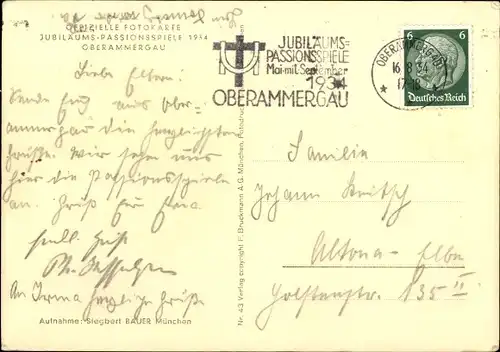 OFFIZIELLE FOTOKARTE
JUBILÄUMS-PASSIONSSPIELE 1934
OBERAMMERGAU
JUBILÄUMS=
PASSIONSSPIELE
Mai mit September
1934
OBERAMMERGAU
OBERAMMERGAU
16.8.34
17-18
6 6
Deutsches Reich
Liebe Eltern!
Sende Euch aus Ober-
ammergau die herzlichsten
Grüße. Wir sehen uns
hier die Passionsspiele
an.
An Irma herzliche Grüße
Familie
Johann
Altona-Elbe
Holstenstr. 135 II
Aufnahme: Siegbert BAUER München
Nr. 43 Verlag copyright F. Bruckmann A.G. München.